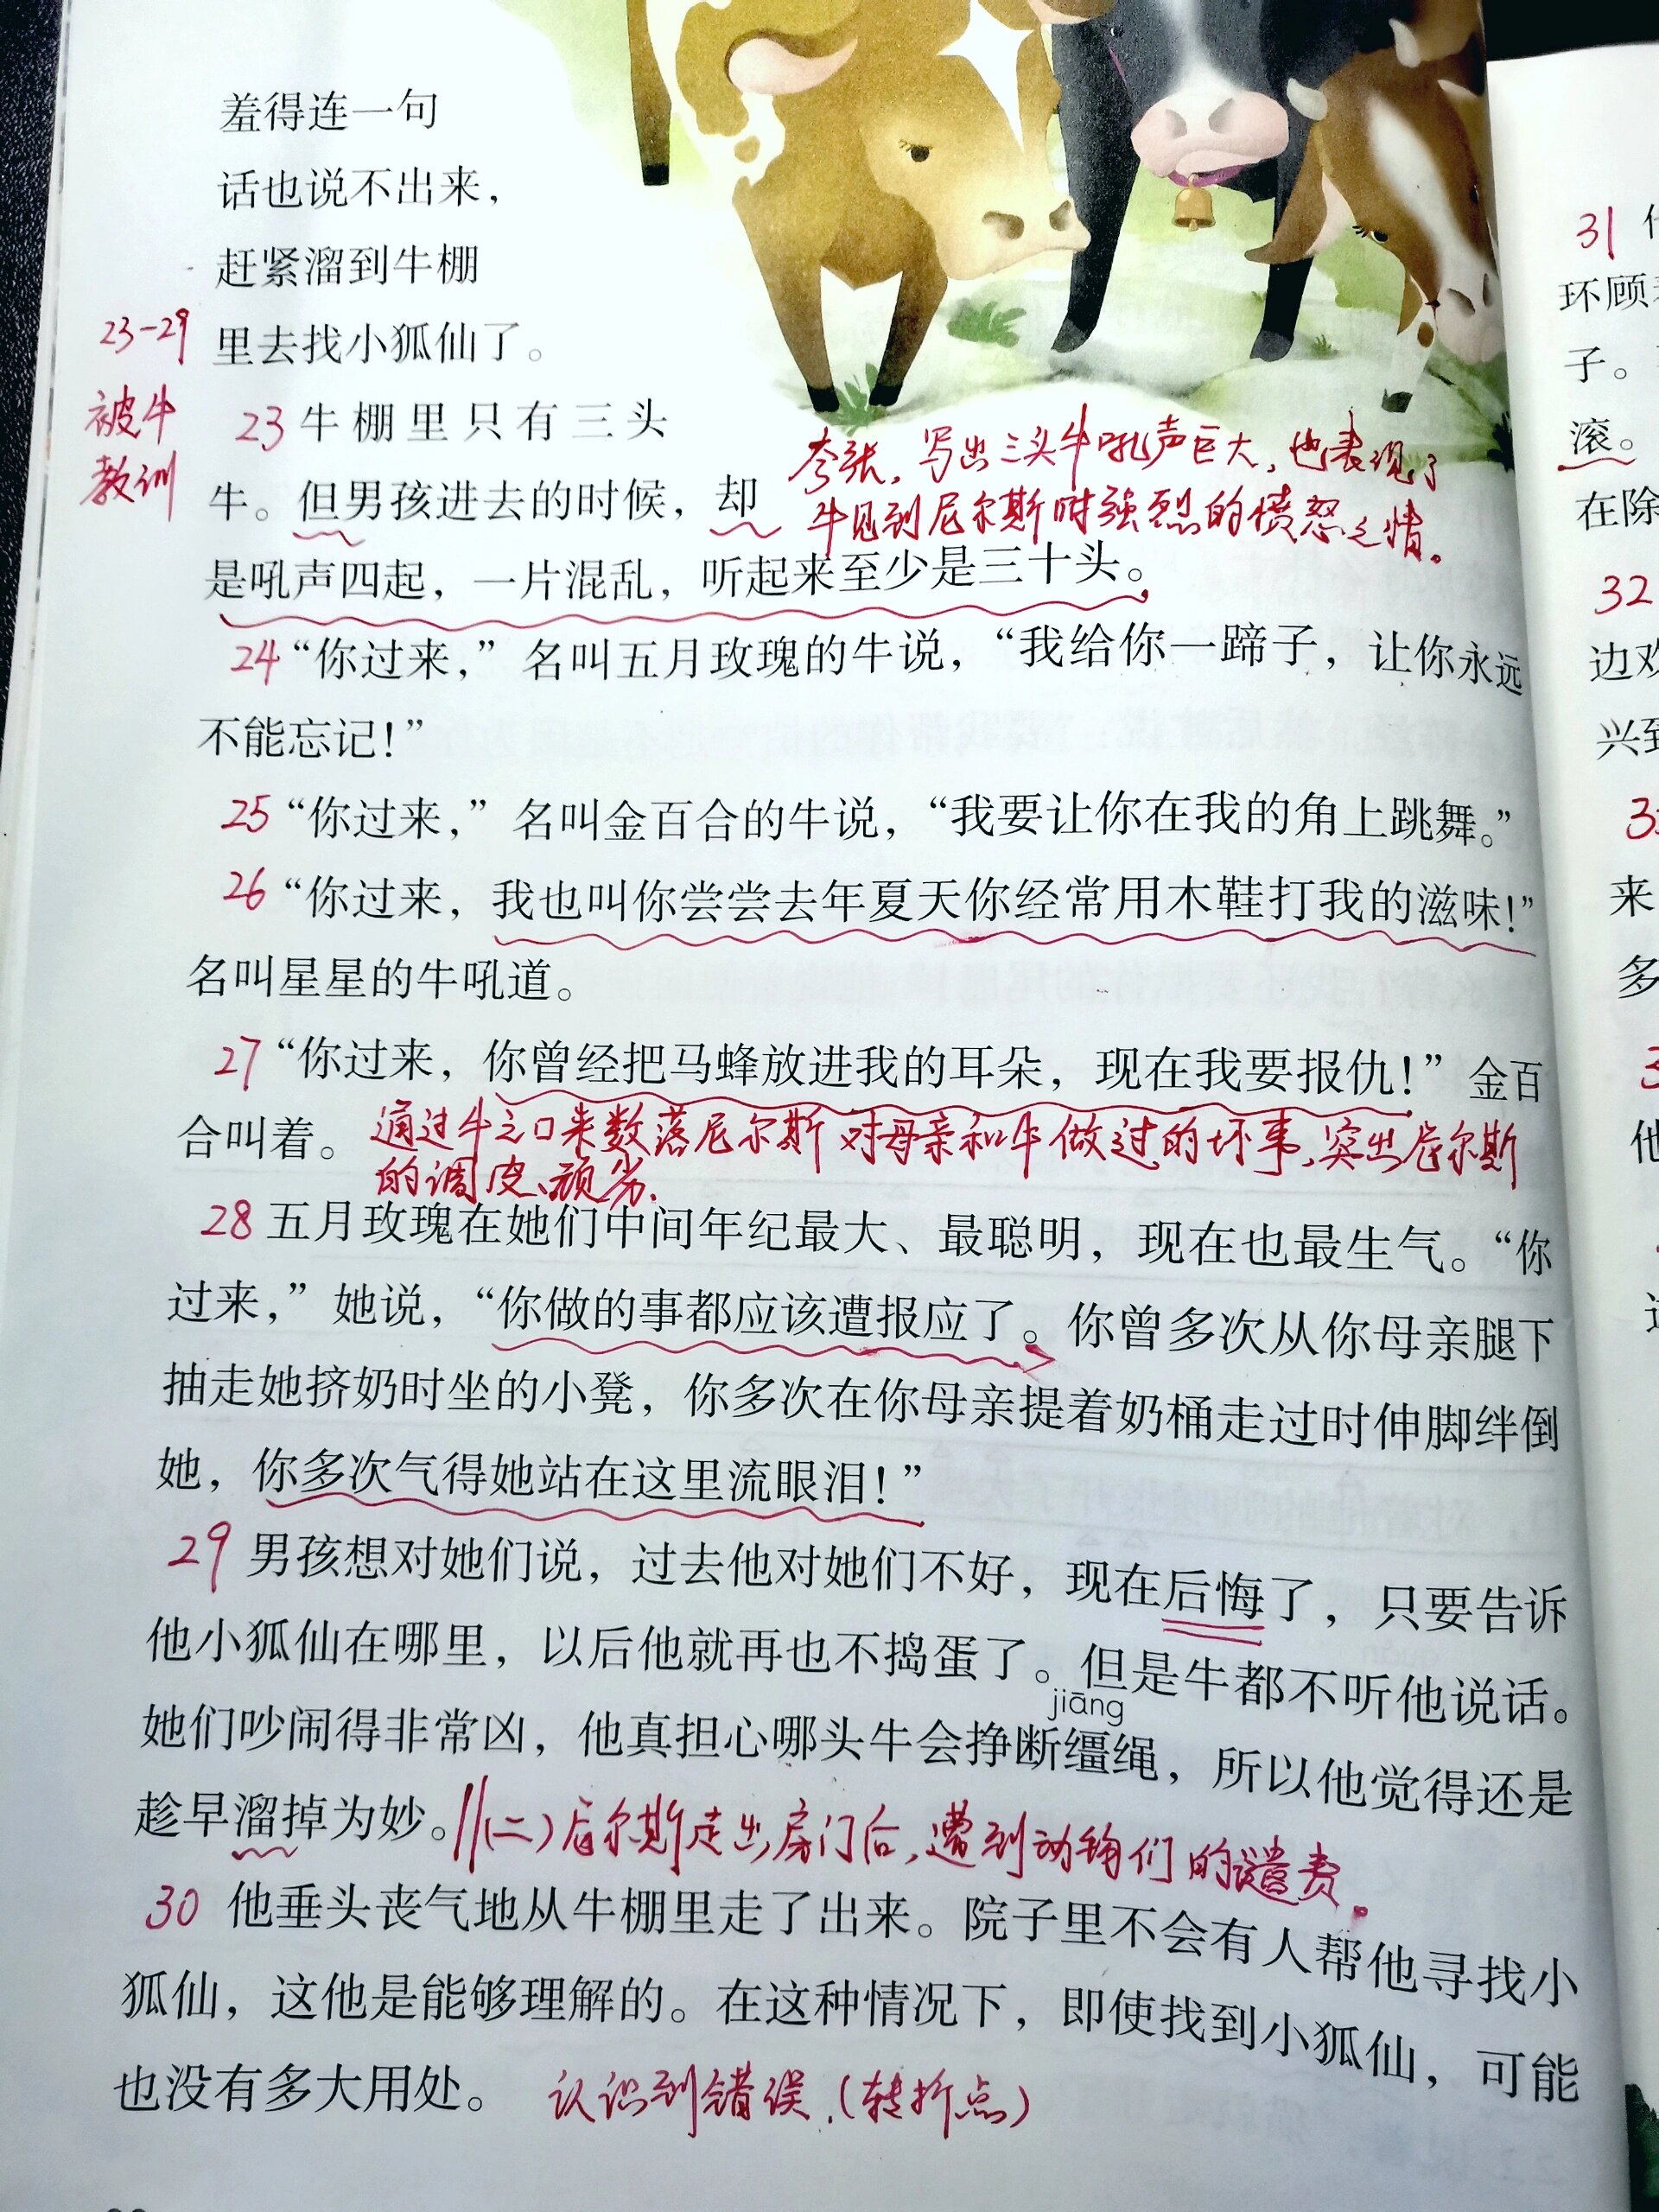 羞得连一句
话也说不出来，
赶紧溜到牛棚
里去找小狐仙了。
23-29
被牛
教训
23 牛棚里只有三头
牛。但男孩进去的时候，却
夸张，写出三头牛吼声巨大，也表现了
牛见到尼尔斯时强烈的愤怒之情。
是吼声四起，一片混乱，听起来至少是三十头。
24 “你过来，”名叫五月玫瑰的牛说，“我给你一蹄子，让你永远
不能忘记！”
25 “你过来，”名叫金百合的牛说，“我要让你在我的角上跳舞。”
26 “你过来，我也叫你尝尝去年夏天你经常用木鞋打我的滋味！”
名叫星星的牛吼道。
27 “你过来，你曾经把马蜂放进我的耳朵，现在我要报仇！”金百
合叫着。
通过牛之口来数落尼尔斯对母亲和牛做过的坏事，突出尼尔斯
的调皮、顽劣。
28 五月玫瑰在她们中间年纪最大、最聪明，现在也最生气。“你
过来，”她说，“你做的事都应该遭报应了。你曾多次从你母亲腿下
抽走她挤奶时坐的小凳，你多次在你母亲提着奶桶走过时伸脚绊倒
她，你多次气得她站在这里流眼泪！”
29 男孩想对她们说，过去他对她们不好，现在后悔了，只要告诉
他小狐仙在哪里，以后他就再也不捣蛋了。但是牛都不听他说话。
jiāng
她们吵闹得非常凶，他真担心哪头牛会挣断缰绳，所以他觉得还是
趁早溜掉为妙。‖(二)尼尔斯走出房门后，遭到动物们的谴责。
30 他垂头丧气地从牛棚里走了出来。院子里不会有人帮他寻找小
狐仙，这他是能够理解的。在这种情况下，即使找到小狐仙，可能
也没有多大用处。 认识到错误.(转折点)
31
环顾
子。
滚。
在除
32
边欢
兴到
来
多
他